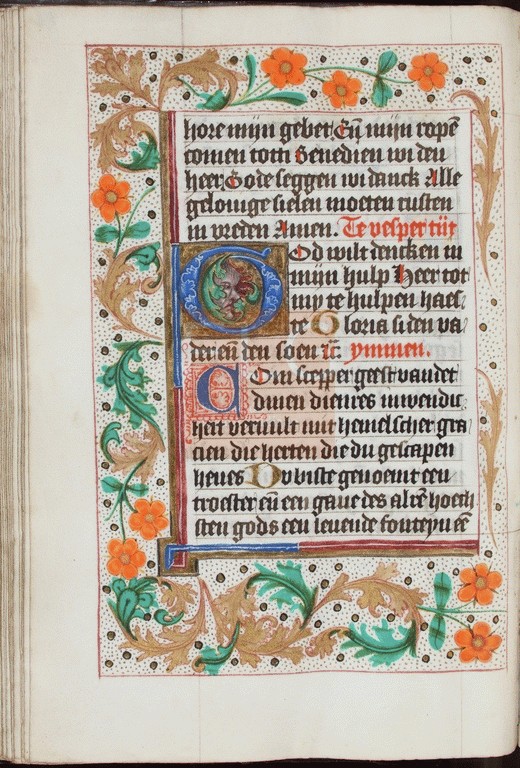 hore mijn gebet. Eñ mijn ropē
comen tott Benedien wi den
heer Gode seggen wi danck Alle
gelouige sielen moeten rusten
in vreden Amen. Te vesper tijt
God wilt dencken in
mijn hulp Heer tot
my te hulpen haes
te Gloria si den va
der eñ den soen ꝛc̄. ymmen.
Com scepper geest vandet
dinen dienres inwendic
heit veruult mit hemelscher gra
cien die herten die du gescapen
heues Du biste genoemt een
troester eñ een gaue des alrē hoech
sten gods een leuende fonteyn eē